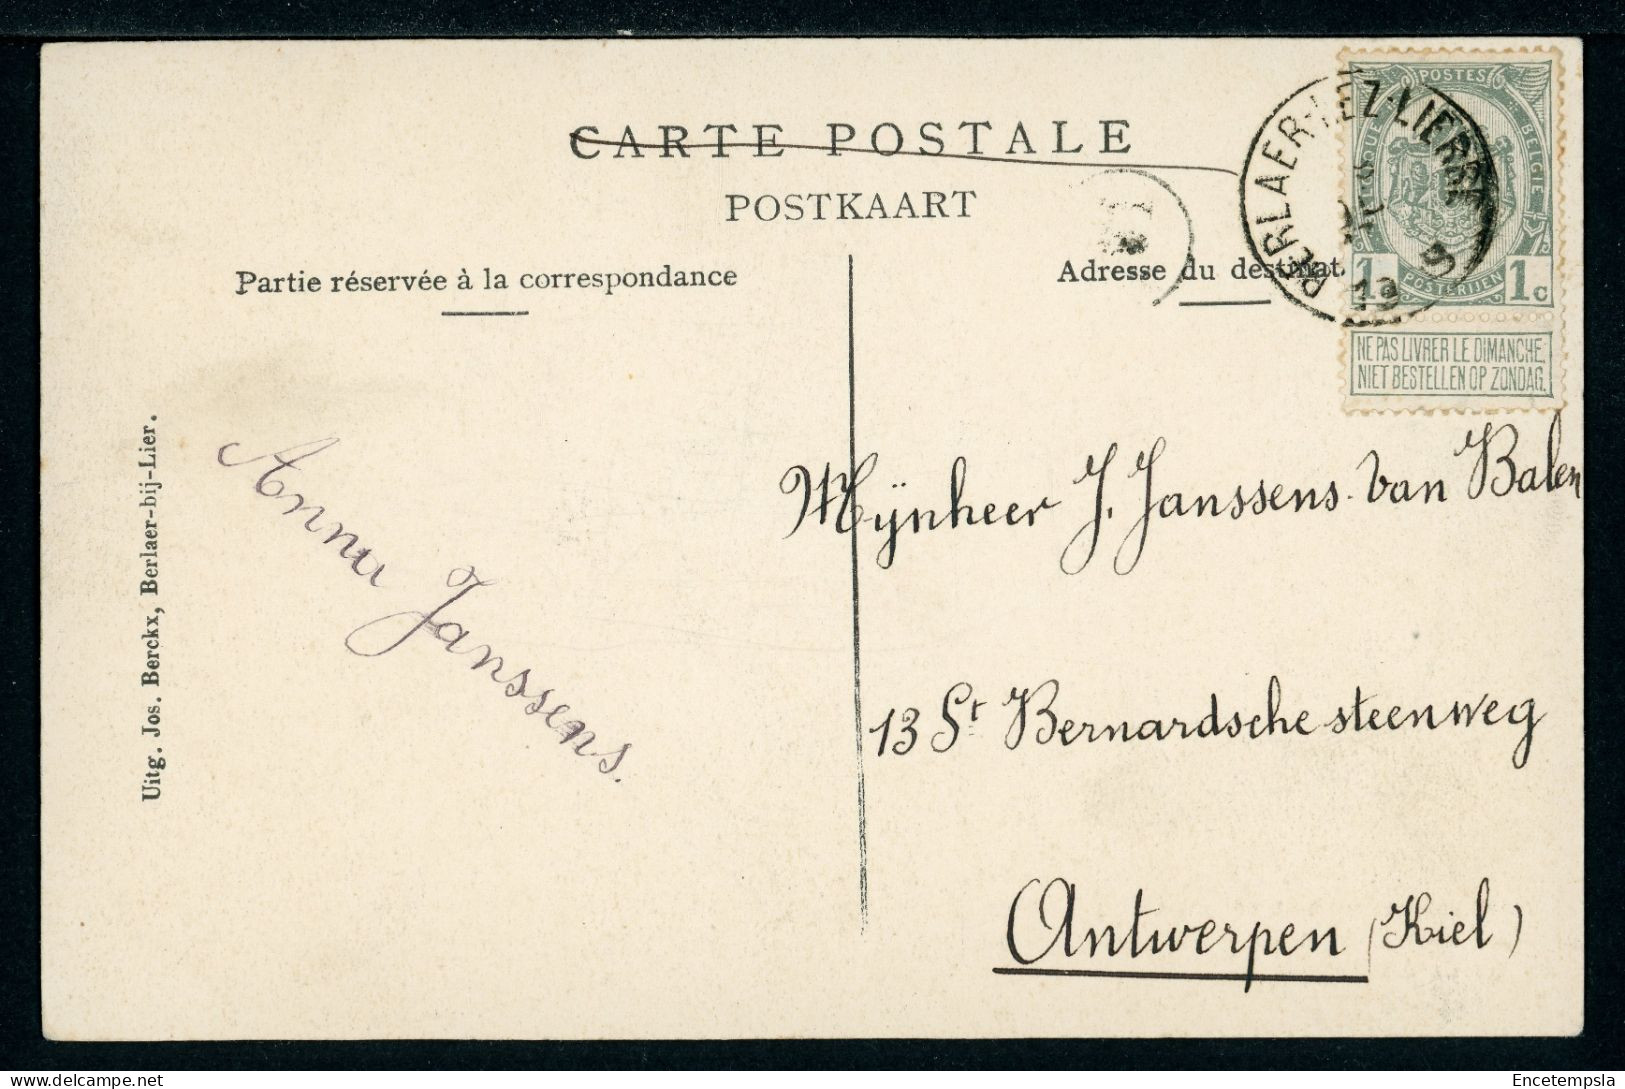 CARTE POSTALE
POSTKAART
Partie réservée à la correspondance
Adresse du destinat
BERLAER-LEZ-LIERRE
19
POSTES
BELGIQUE
BELGIE
POSTERIJEN
1 1c
NE PAS LIVRER LE DIMANCHE.
NIET BESTELLEN OP ZONDAG.
Uitg. Jos. Berckx, Berlaer-bij-Lier.
Anna Janssens.
Mynheer J. Janssens-Van Balen
13 St Bernardsche steenweg
Antwerpen (Kiel)
Encetempsla